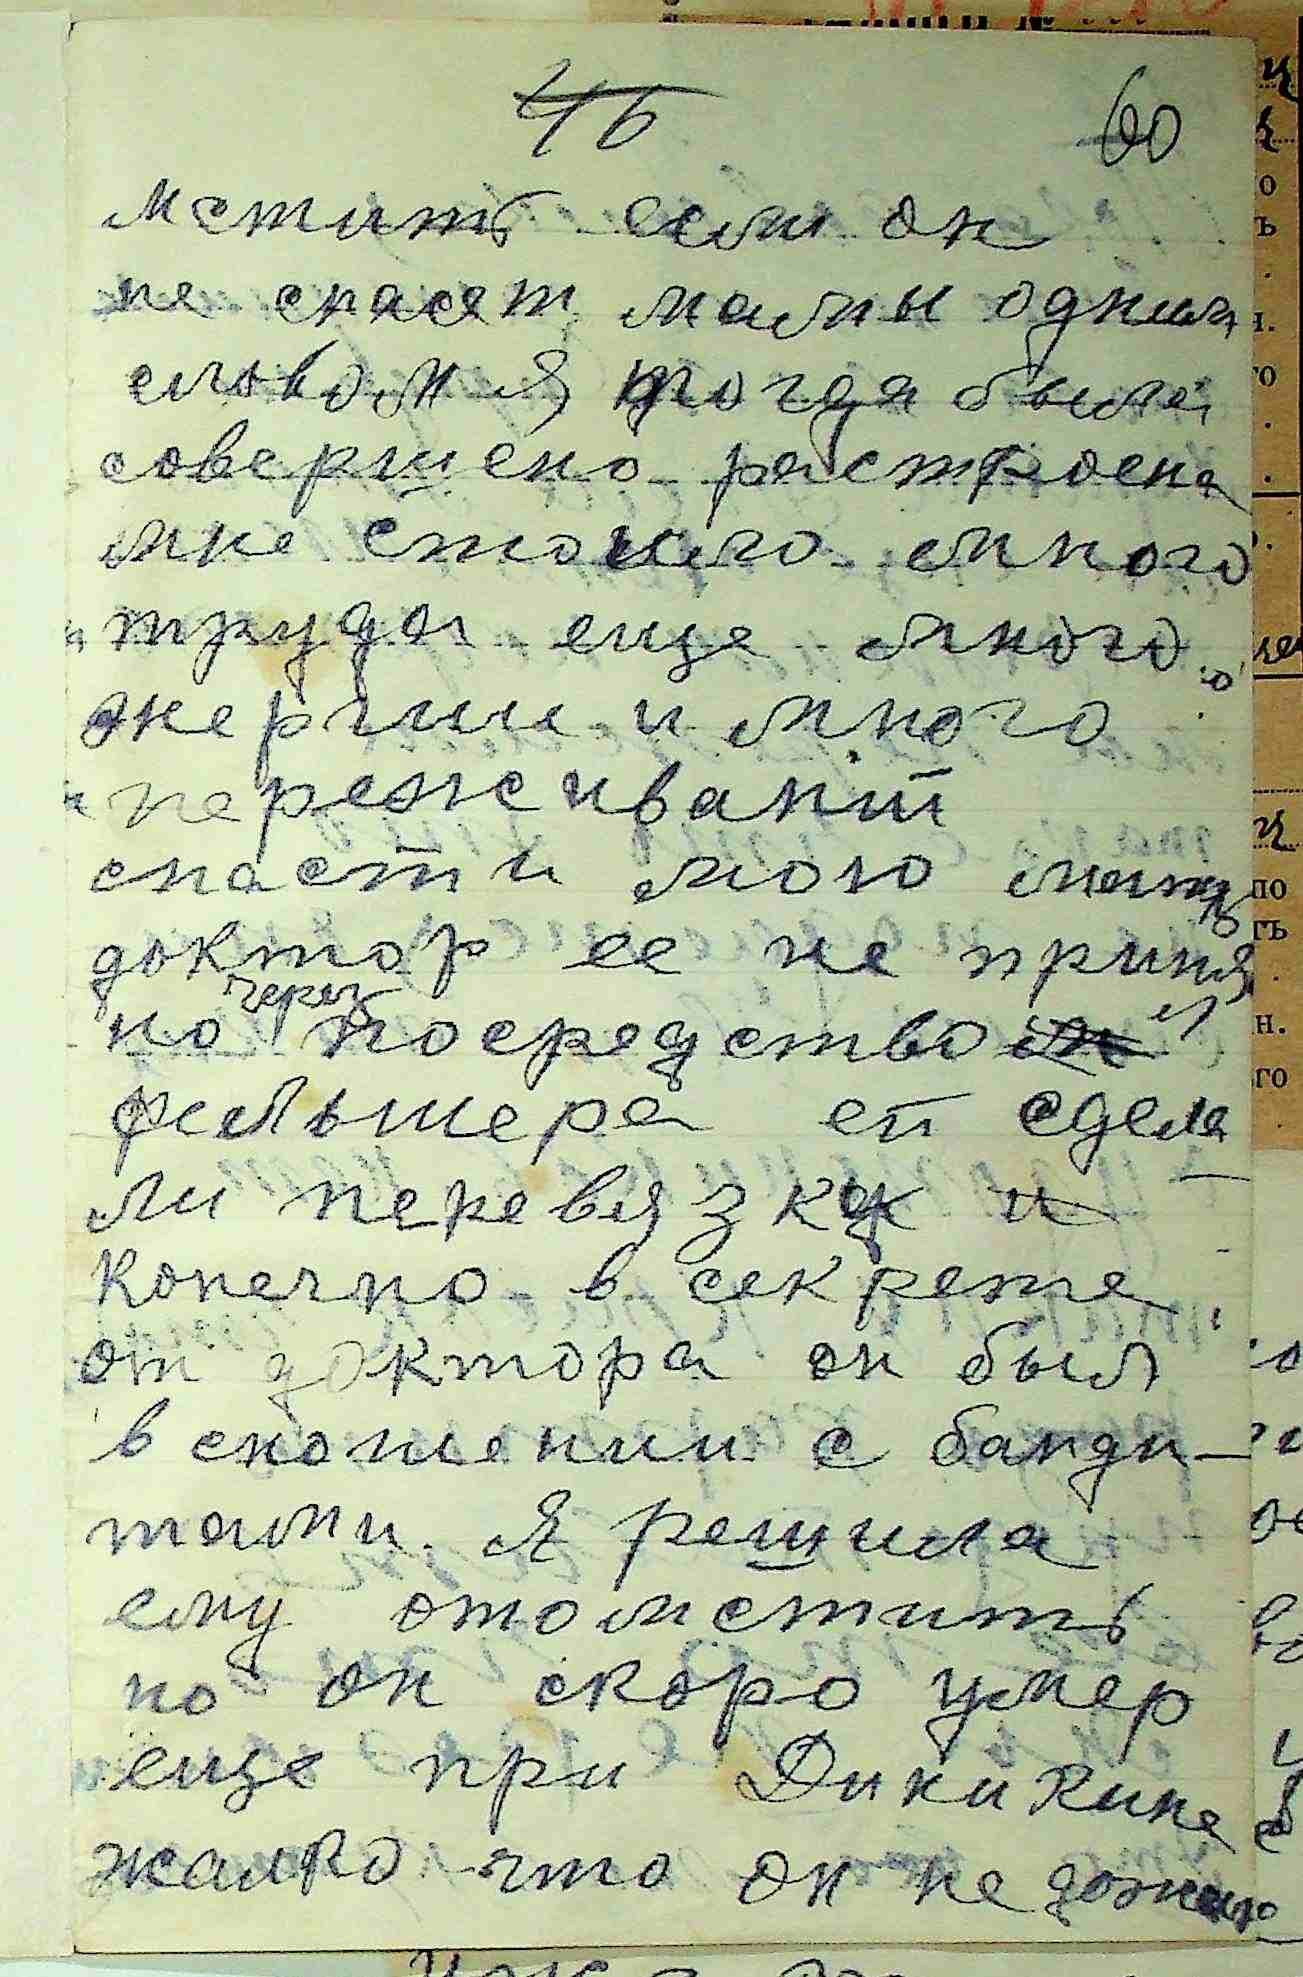 46 60
мстить если он
не спасет мамы одним
словом я тогда была
совершено растроена
мне стоило много
труда еще много
энергии и много
переживаній
спасти мою мать
доктор ее не приня
л
но через посредство
фельшера ей сдела
ли перевязку и
конечно в секрете
от доктора он был
в сношении с банди-
тами. Я решила
ему отомстить
но он скоро умер
еще при Дникине
жалко что он не дожил